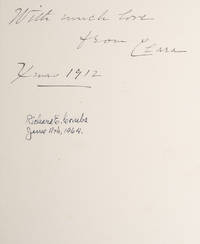 With much love
from Clara
Xmas 1912
Richard E. Combs
June 11th, 1964.